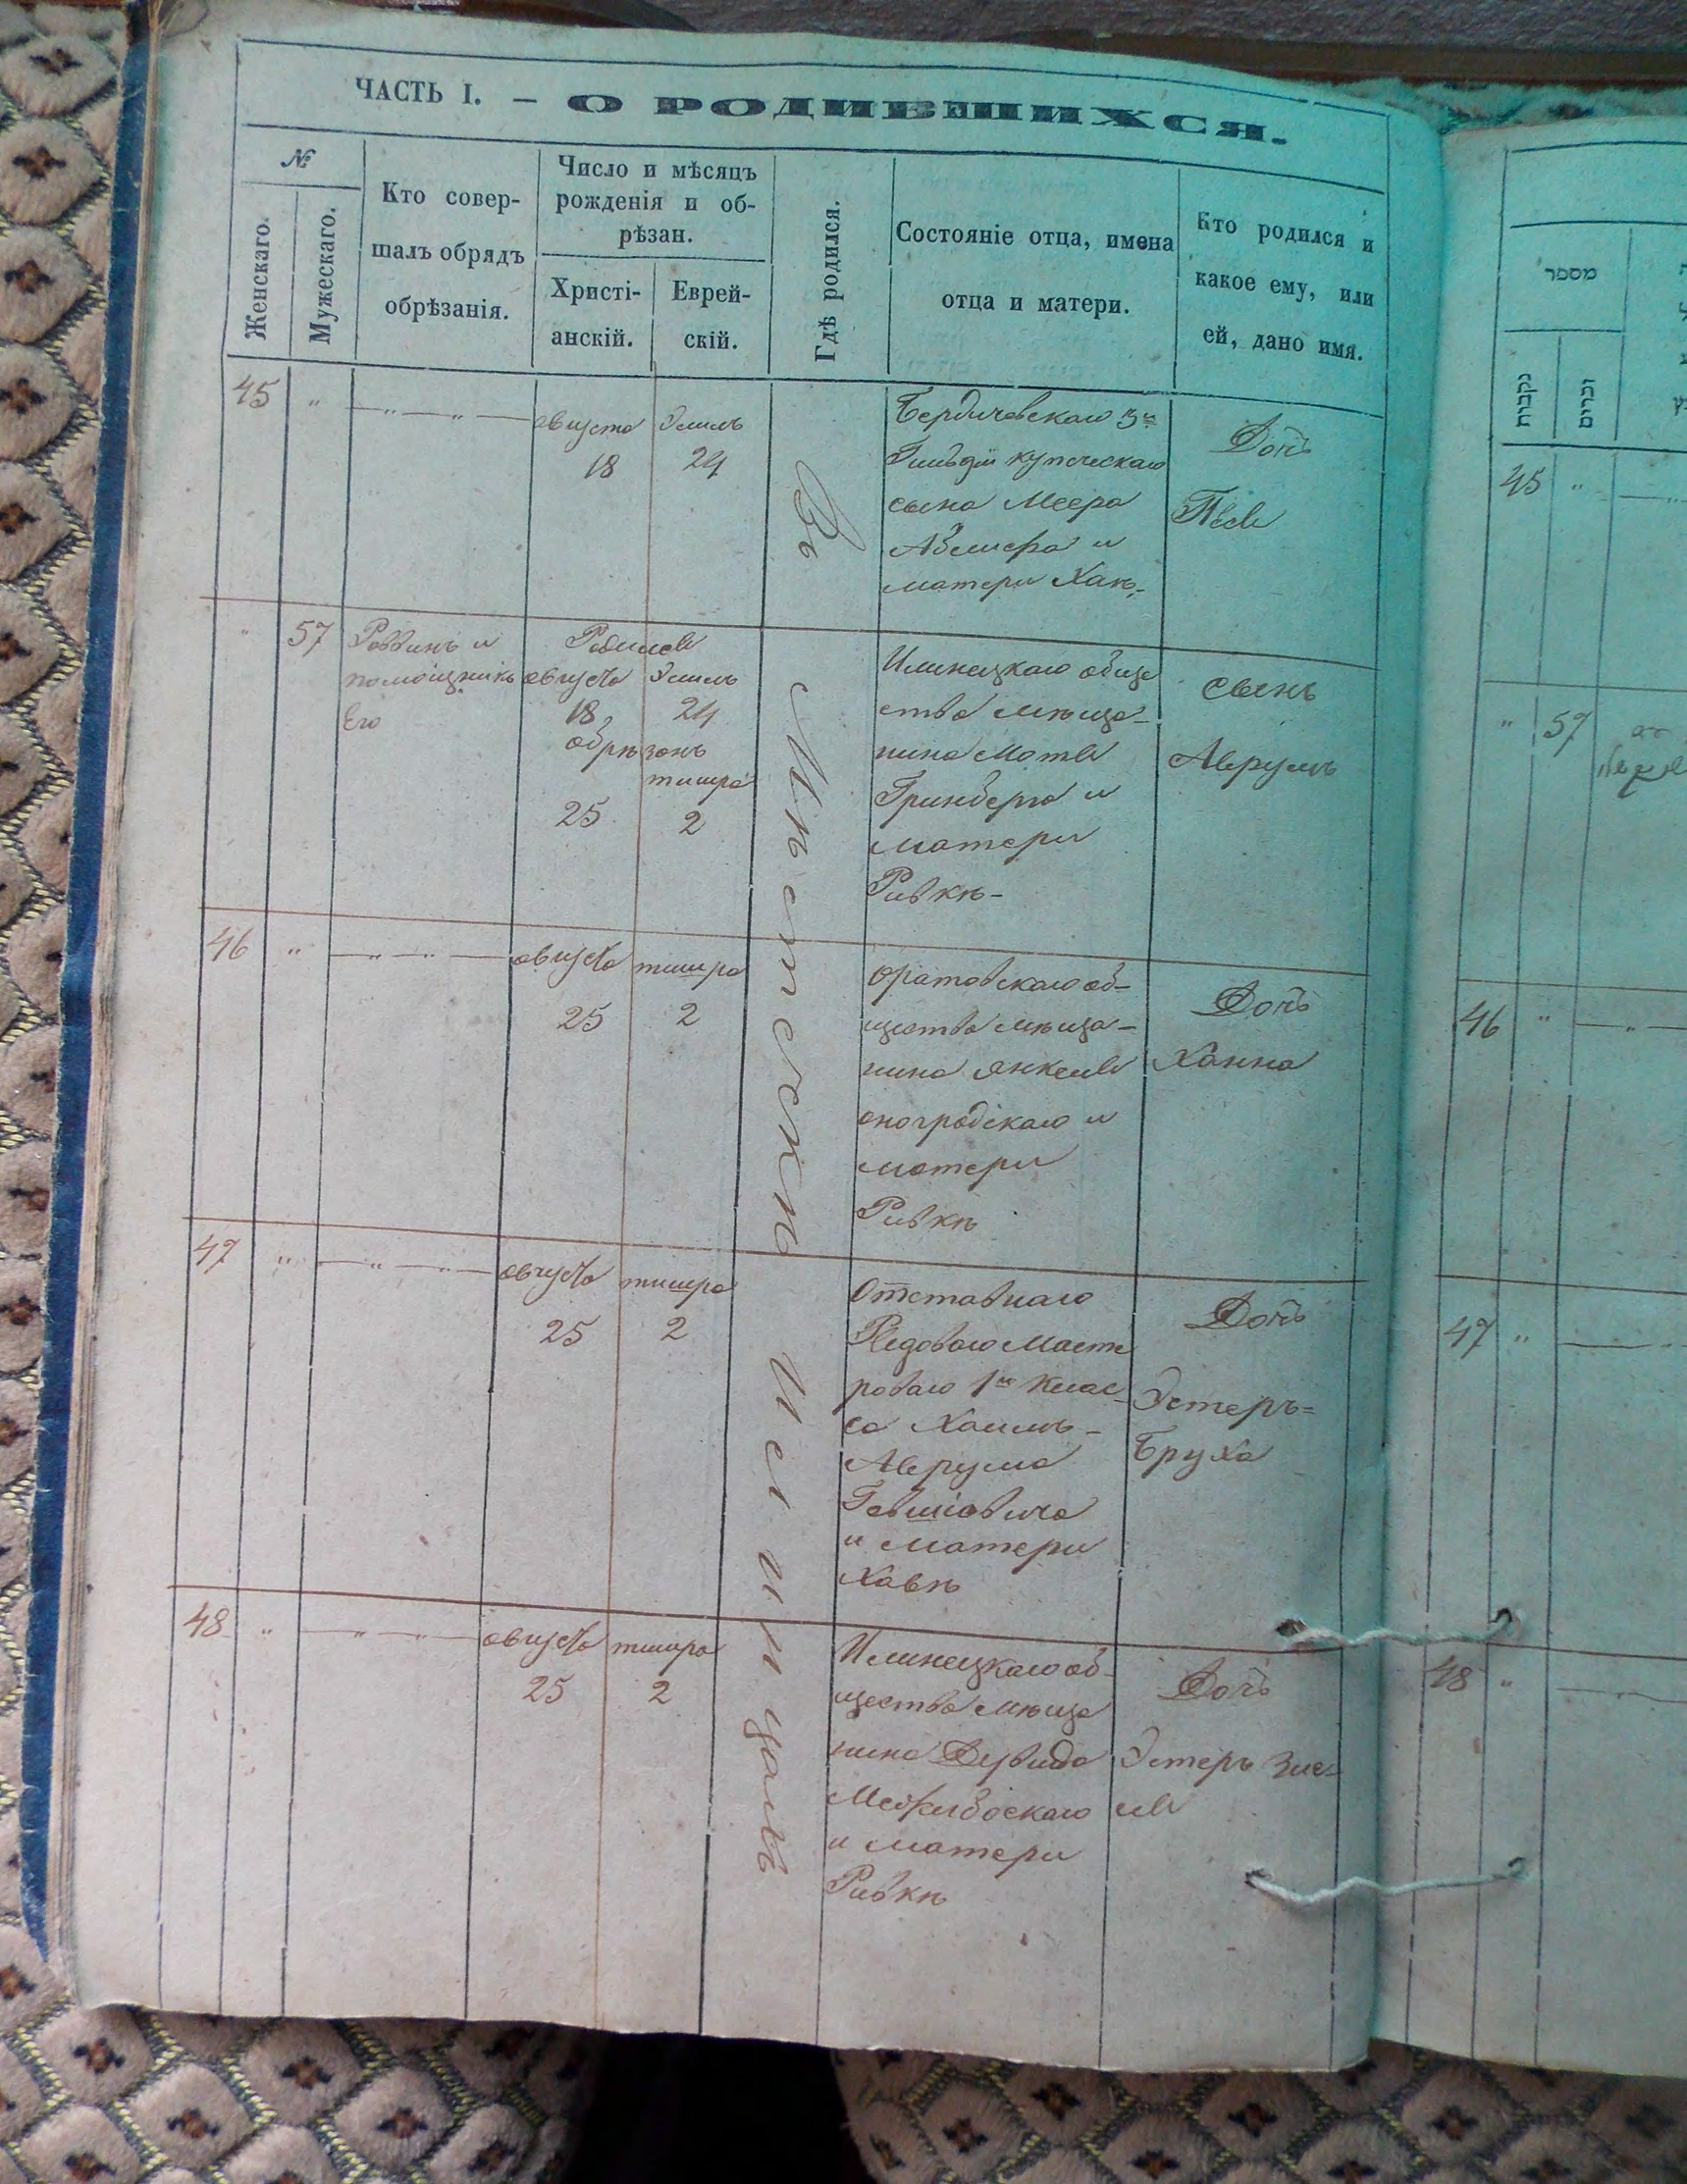 ЧАСТЬ I. — О РОДИВШИХСЯ.
№
Женскаго.
Мужескаго.
Кто совер-
шалъ обрядъ
обрѣзанія.
Число и мѣсяцъ
рожденія и об-
рѣзан.
Христі-
анскій.
Еврей-
скій.
Гдѣ родился.
Состояніе отца, имена
отца и матери.
Кто родился и
какое ему, или
ей, дано имя.
Въ Мѣстечкѣ Илинцахъ
45 " — " — " — августа Элилъ
18 24
Бердичевскаго 3й
Гильдіи купеческаго
сына Меера
и
матери Хан
Дочь
Песя
" 57 Раввинъ и
помощникъ
Его
Родился
августа Элилъ
18, 24
обрѣзанъ
тишра
25 2
Илинецкаго обще
ства мѣща-
нина Мотя
Гринберга и
матери
Ривкѣ-
Сынъ
Аврумъ
46 " — " — " — августа тишра
25 2
Оратовскаго об-
щества мѣща-
нина Янкеля
и
матери
Ривкѣ
Дочь
Ханна
47 " — " — " — августа тишра
25 2
Отставнаго
Рядоваго Масте
роваго 1го Клас-
са Хаимъ-
Аврума
и матери
Хавѣ
Дочь
Эстеръ=
Бруха
48 " — " — " — августа тишра
25 2
Илинецкаго об-
щества мѣща
нина Дувида
Межибоскаго
и матери
Ривкѣ
Дочь
Эстеръ Зис=
ля
מספר
נקבות
זכרים
45 "
" 57
46 "
47 "
48 "